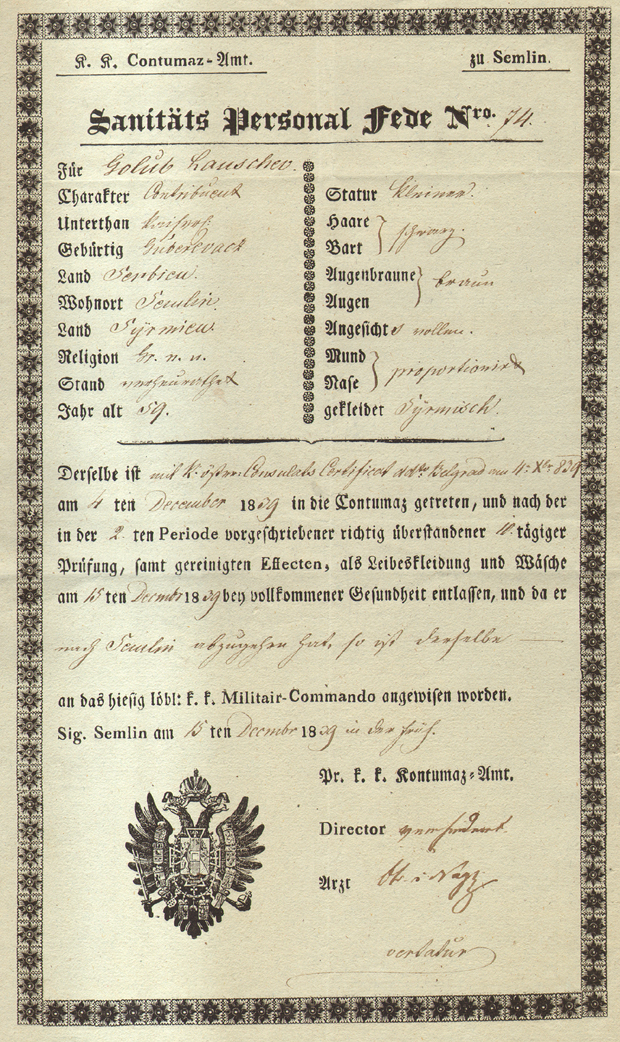 K. K. Contumaz-Amt. zu Semlin.
Sanitäts Personal Fede Nro. 74.
Für Golub Lauschev.
Charakter Contribuent
Unterthan
Gebürtig Guberevach
Land Serbien.
Wohnort Semlin.
Land Syrmien.
Religion Gr. n. u.
Stand verheurathet
Jahr alt 59.
Statur kleiner.
Haare
Bart } schwarz.
Augenbraune
Augen } braun
Angesichts vollen.
Mund
Nase } proportionirt
gekleidet Syrmisch.
Derselbe ist mit k: östrr: Consulats Certificat Belgrad am 4: Xbr 839
am 4 ten December 1839 in die Contumaz getreten, und nach der
in der 2. ten Periode vorgeschriebener richtig überstandener 10. tägiger
Prüfung, samt gereinigten Effecten, als Leibeskleidung und Wäsche
am 15 ten Decembr 1839 bey vollkommener Gesundheit entlassen, und da er
nach Semlin abzugehen hat, so ist derselbe
an das hiesig löbl: k. k. Militair-Commando angewisen worden.
Sig. Semlin am 15 ten Decembr 1839 in der früh.
Pr. k. k. Kontumaz-Amt.
Director verhindert.
Arzt